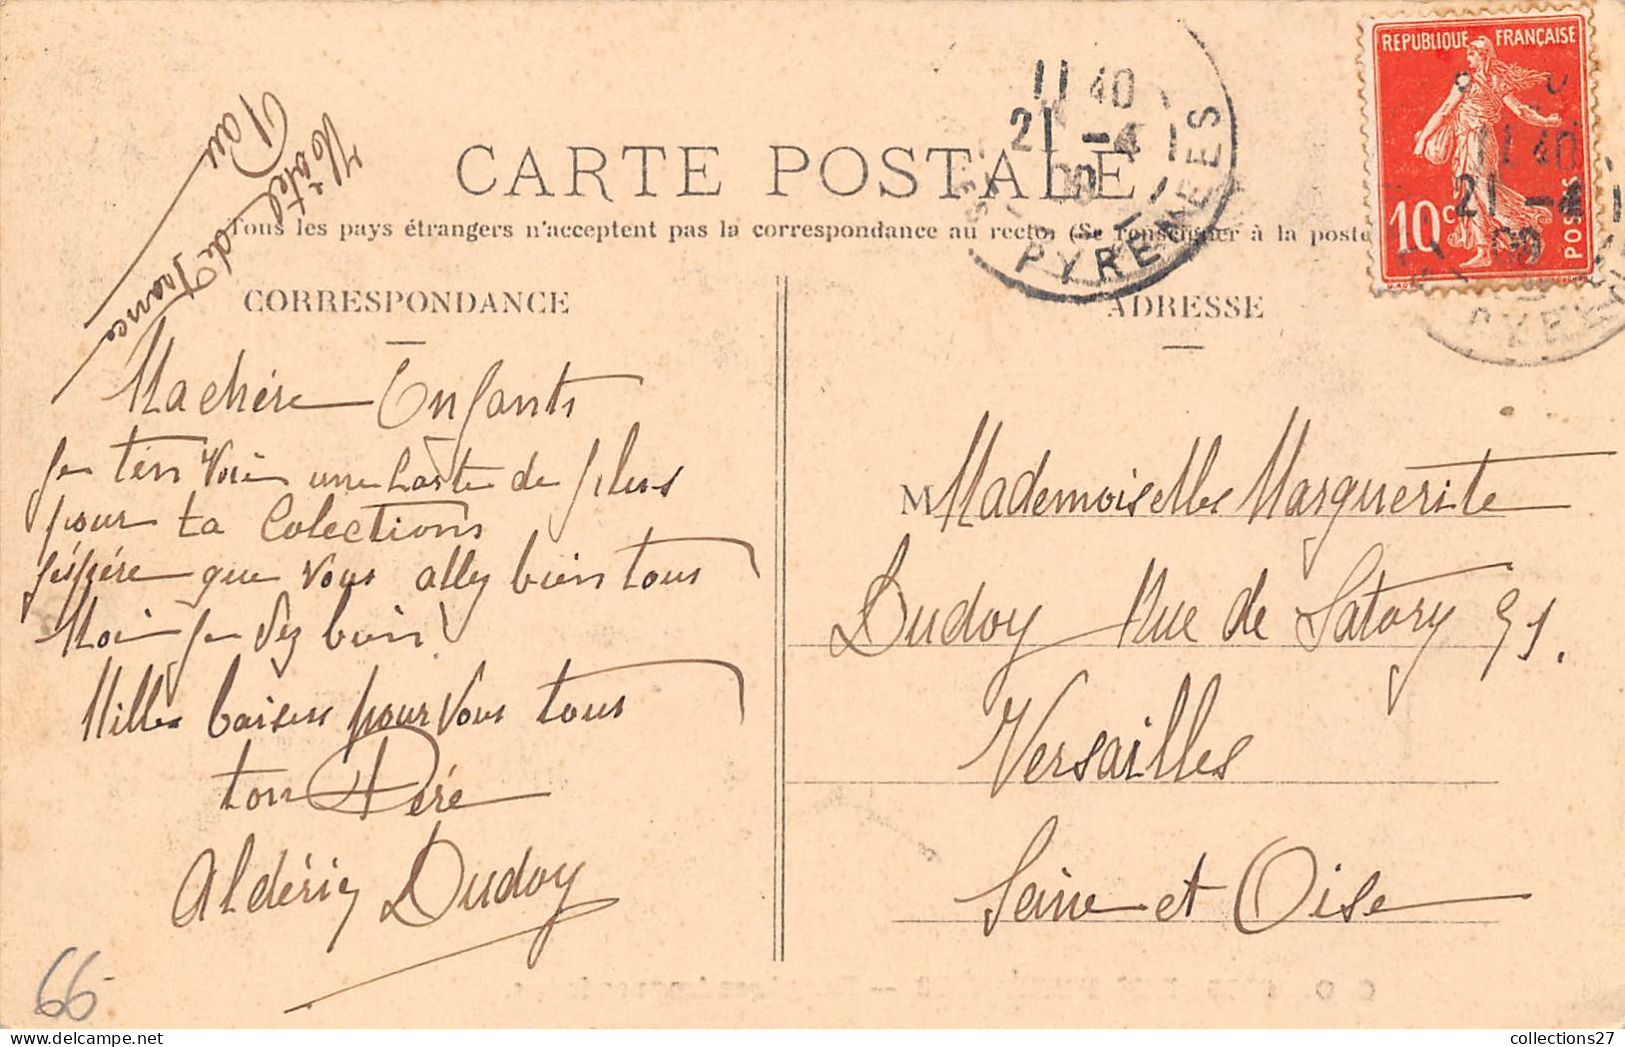 REPUBLIQUE FRANÇAISE
10 c
POSTES
11 40
21 -4
09
PYRENEES
11 40
21 -4
09
CARTE POSTALE
Tous les pays étrangers n'acceptent pas la correspondance au recto. (Se renseigner à la poste
CORRESPONDANCE
ADRESSE
Hôtel de France
Pau
Ma chére Enfants
Je t'en voie une Carte de plus
pour ta Colections
J'éspére que vous allez bien tous
Moi je vez bien
Milles baisers pour vous tous
ton Péré
Aldéric Dudoy
M Mademoiselles Marguerite
Dudoy Rue de Satory 91.
Versailles
Seine et Oise
66
collections27